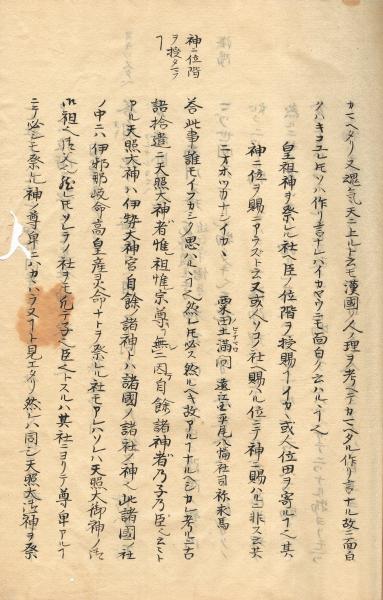 カヘタリ又魂気天ニ上ルト云モ漢國ノ人理ヲ考ヘテカマヘタル作リ言ナル故ニ面白
クハキコユレ𪜈ソハ作リ言ナレハイカヤウニモ面白ク云ハルヽ也
神ニ位階ヲ授タマフ
皇祖神ヲ祭レル社ヘ臣ノ位階ヲ授賜フ
イカヽ或人位田ヲ寄ル
神ニ位ヲ賜ニアラスト云又或人ソヲハ社ヘ賜ハル位ニテ神ニ賜ハルニ非スト云共
ニオホツカナシイカヽ
粟田土滿問 遠江國平尾八幡社司 称求馬
答此事誰モイフカシク思ハルヽ也然レ𪜈必ス然ルヘキ故アルナルヘシカレ考ルニ古
語拾遺ニ天照大神者惟祖惟宗尊无二因自餘諸神者乃子乃臣ト云ヘリ
アル天照大神ハ伊勢大神宮自餘ノ諸神トハ諸國ノ諸社ノ神也此諸國ノ社
ノ中ニハ伊邪那岐命高皇産灵命ナトヲ祭レル社モアレハソレハ天照大御神ノ
ソレラノ社ヲモ
子ト臣トスルハ其社ニヨリテ尊卑アル
ニテ必シモ祭レル神ノ尊卑ニハカヽハラヌ
ト見エタリ然レハ同シ天照大御神ヲ祭